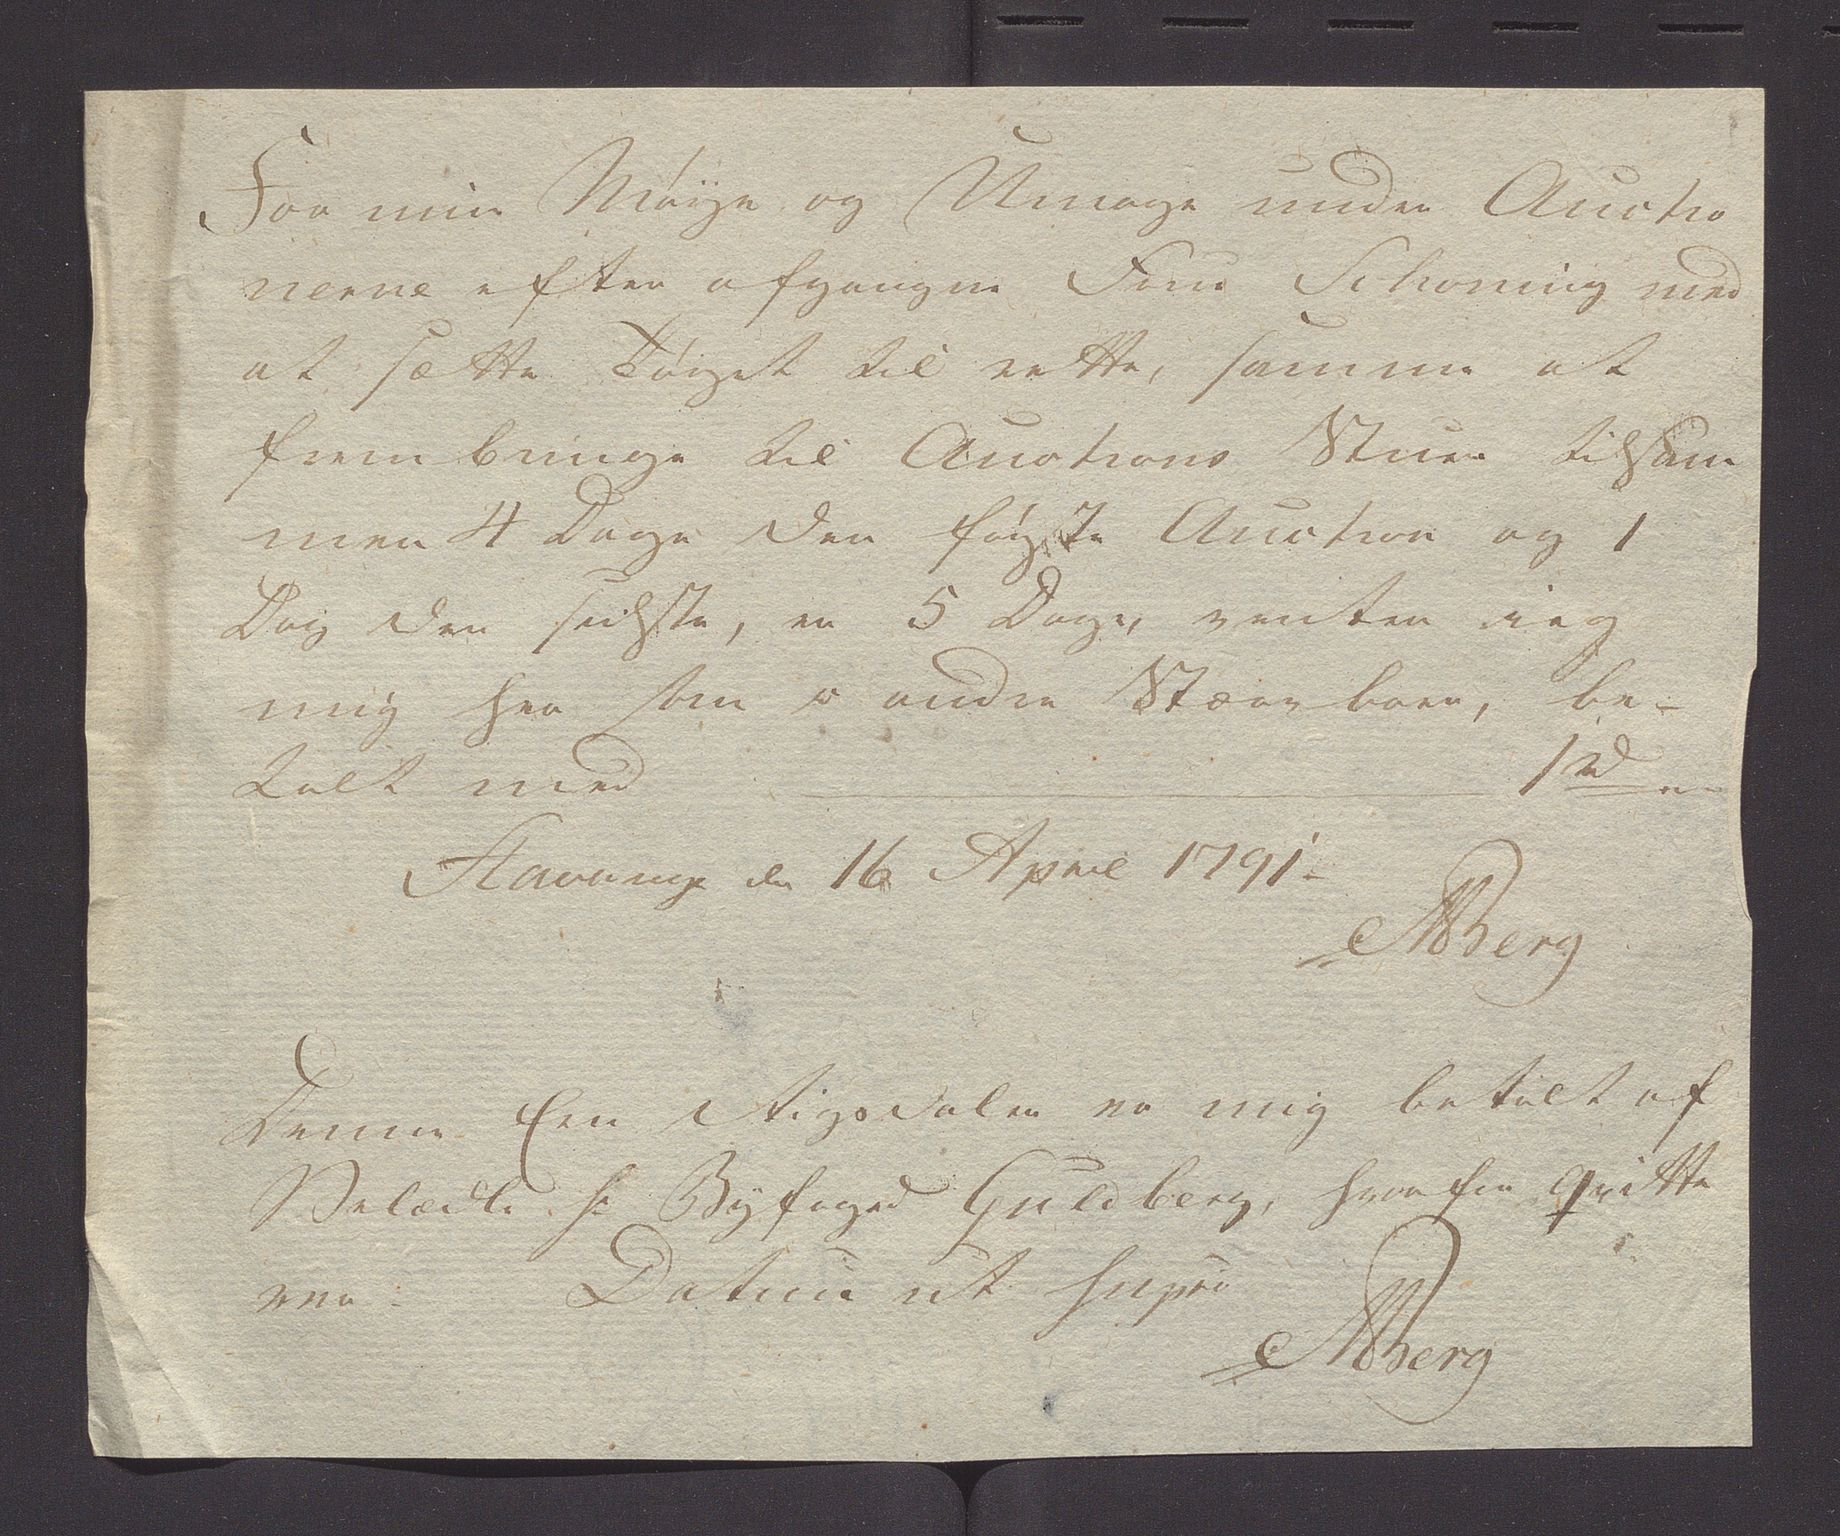 For min Møÿe og Umage under Auctio
nerne efter afgangne Frue Schoning med
at sætte Tøiget til rette, samme at
frembringe til Auctions Stuen tilsam
men 4 Dage den første Auction og 1
Dag den sidste, er 5 Dage, venter ieg
mig her som i andre Stærvboer, be-
talt med 1 rd
Stavanger den 16 April 1791.
Berg
Denne Een Rigsdaler er mig betalt af
Velædle Hr Byfoged Guldberg, hvorfor qvitte
rer. Datum ut supra
Berg